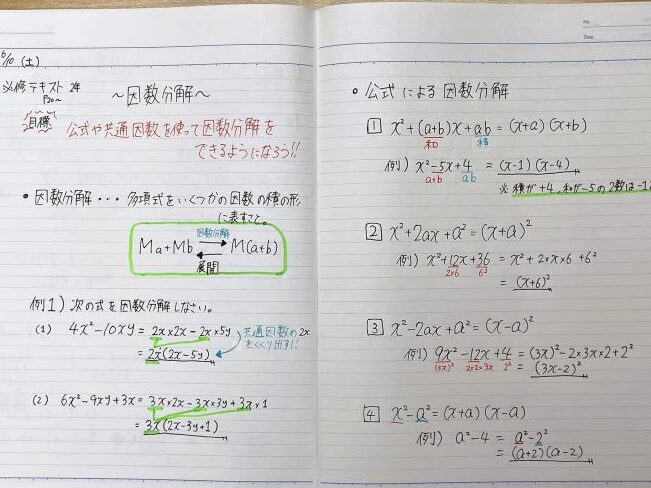 6/10 (土)
必修テキスト 2年
P20~
~因数分解~
目標
公式や共通因数を使って因数分解を
できるようになろう!!
• 因数分解・・・多項式をいくつかの因数の積の形
に表すこと。
因数分解
Ma+Mb M(a+b)
展開
例1) 次の式を因数分解しなさい。
(1) 4x²-10xy = 2x×2x - 2x×5y
共通因数の2x
をくくり出す!!
= 2x(2x-5y)
(2) 6x²-9xy+3x = 3x×2x - 3x×3y + 3x×1
= 3x(2x-3y+1)
No.
Date
• 公式による因数分解
1 x²+(a+b)x+ab = (x+a)(x+b)
和 積
例) x²-5x+4 = (x-1)(x-4)
a+b ab
※ 積が+4、和が-5の2数は-1
2 x²+2ax+a² = (x+a)²
例) x²+12x+36 = x²+2×x×6+6²
2×6 6²
= (x+6)²
3 x²-2ax+a² = (x-a)²
例) 9x²-12x+4 = (3x)²-2×3x×2+2²
(3x)² 2×2×3x 2²
= (3x-2)²
4 x²-a² = (x+a)(x-a)
例) a²-4 = a²-2²
= (a+2)(a-2)